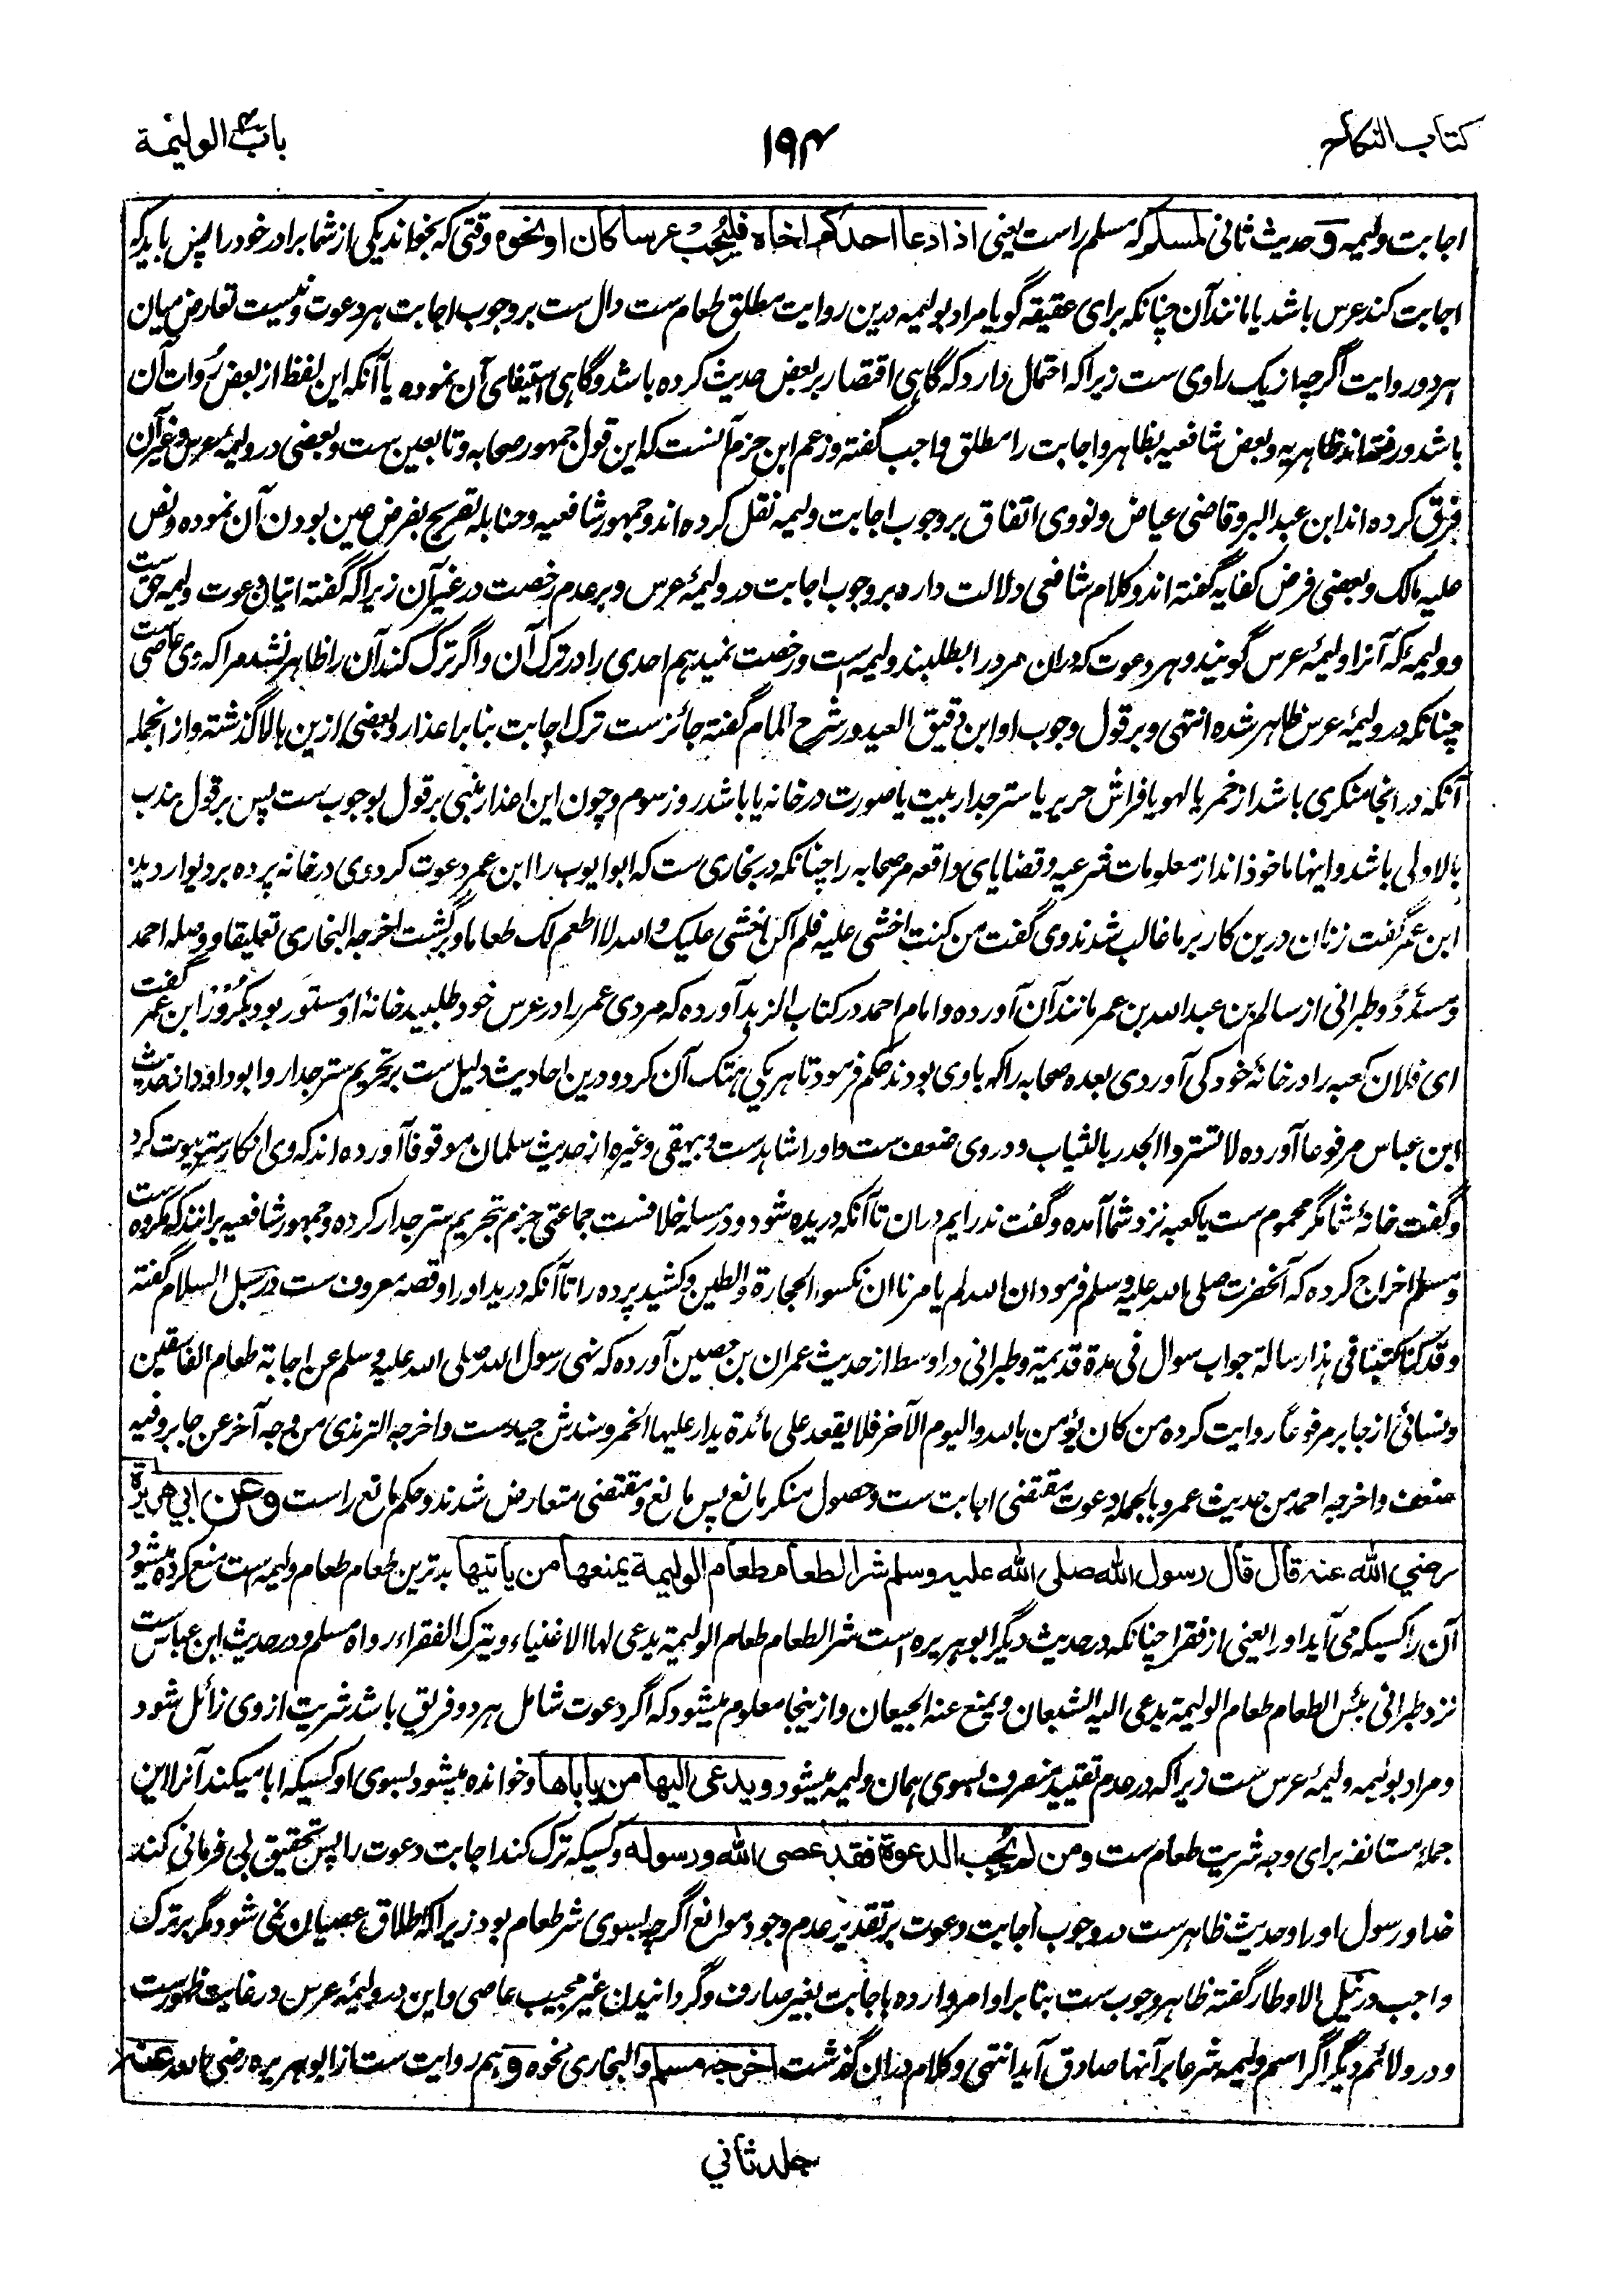 کتاب النکاح
۱۹۴
باب الولیمة
اجابت ولیمه و حدیث ثانی لمسلم که مسلم راست یعنی اذا دعا احدکم اخاه فلیُجِبْ عرسا کان او نحوه وقتی که بخواند یکی از شما برادر خود را پس باید که
اجابت کند عرس باشد یا مانند آن چنانکه برای عقیقه گویا مراد بولیمه درین روایت مطلق طعام ست دال ست بر وجوب اجابت هر دعوت و نیست تعارض میان
هر دو روایت اگرچه از یک راوی ست زیرا که احتمال دارد که گاهی اقتصار بر بعض حدیث کرده باشد و گاهی استیفای آن نموده یا آنکه این لفظ از بعض رُوات آن
باشد و رفته‌اند ظاهریه و بعض شافعیه بظاهر و اجابت را مطلق واجب گفته و زعم ابن حزم آنست که این قول جمهور صحابه و تابعین ست و بعضی در ولیمهٔ عرس و غیر آن
فرق کرده اند ابن عبد البر و قاضی عیاض و نووی اتفاق بر وجوب اجابت ولیمه نقل کرده اند و جمهور شافعیه و حنابله تصریح بفرض عین بودن آن نموده و نص
علیه مالک و بعضی فرض کفایه گفته اند و کلام شافعی دلالت داره بر وجوب اجابت در ولیمهٔ عرس و بر عدم رخصت در غیر آن زیرا که گفته اتیان دعوت ولیمه حق ست
و ولیمهٔ که آنرا ولیمهٔ عرس گویند و هر دعوت که دران مرد را بطلبند ولیمه است و رخصت نمیدهم احدی را در ترک آن و اگر ترک کند آن را ظاهر نشد مرا که وی عاصی ست
چنانکه در ولیمهٔ عرس ظاهر شده انتهی و بر قول وجوب او ابن دقیق العید در شرح المام گفته جائز ست ترک اجابت بنا بر اعذار و بعضی ازین بالا گذشته و از انجمله
آنکه در انجا منکری باشد از خمر یا لهو یا فراش حریر یا ستر جدار بیت یا صورت در خانه یا باشد روز سوم و چون این اعذار مبنی بر قول بوجوب ست پس بر قول ندب
بالاولی باشد و اینها ماخوذ اند از معلومات شرعیه و قضایای واقعه مر صحابه را چنانکه در بخاری ست که ابو ایوب را ابن عمر دعوت کرد وی در خانه پرده بر دیوار دید
ابن عمر گفت زنان درین کار بر ما غالب شدند وی گفت من کنت اخشی علیه فلم اکن اخشی علیک والله لا اطعم لک طعاما و برگشت اخرجه البخاری تعلیقا و وصله احمد
و مسدَّدُ و طبرانی از سالم بن عبد الله بن عمر مانند آن آورده و امام احمد در کتاب الزهد آورده که مردی عمر را در عرس خود طلبید خانهٔ او مستور بود بکُرُوز ابن عمر گفت
ای فلان کعبه را در خانهٔ خود کی آوردی بعده صحابه را که باوی بودند حکم فرمود تا هر یکی هتک آن کرد و درین احادیث دلیل ست بر تحریم ستر جدار و ابو داود از حدیث
ابن عباس مرفوعا آورده لا تستروا الجدر بالثیاب و در وی ضعف ست و او را شاهدست و بیهقی و غیره از حدیث سلمان موقوفا آورده اند که وی انکار ستر بیوت کرد
و گفت خانهٔ شما مگر محموم ست یا کعبه نزد شما آمده و گفت ندرایم دران تا آنکه دریده شود و در مسله خلافست جماعتی جزم بتحریم ستر جدار کرده و جمهور شافعیه برانند که مکروه ست
و مسلم اخراج کرده که آنحضرت صلی الله علیه وسلم فرمود ان الله لم یامرنا ان نکسو الحجارة والطین و کشید پرده را تا آنکه درید او را و قصه معروف ست در سبل السلام گفته
وقد کنا کتبنا فی هذا رسالة جواب سوال فی مدة قدیمة و طبرانی در اوسط از حدیث عمران بن حصین آورده که نهی رسول الله صلی الله علیه وسلم عن اجابة طعام الفاسقین
و نسائی از جابر مرفوعًا روایت کرده من کان یؤمن بالله والیوم الآخر فلا یقعد علی مائدة یدار علیها الخمر و سندش جیدست و اخرجه الترمذی من وجه آخر عن جابر و فیه
ضعف و اخرجه احمد من حدیث عمر و بالجمله دعوت مقتضی اجابت ست و حصول منکر مانع پس مانع و مقتضی متعارض شدند و حکم مانع راست وعن ابی هریرة
رضی الله عنه قال قال رسول الله صلی الله علیه وسلم شر الطعام طعام الولیمة یمنعها من یاتیها بدترین طعام طعام ولیمه است منع کرده میشود
آن را کسیکه می‌آید او را یعنی از فقرا چنانکه در حدیث دیگر ابو هریره است شر الطعام طعام الولیمة یدعی لها الاغنیاء ویترک الفقراء رواه مسلم و در حدیث ابن عباس ست
نزد طبرانی بئس الطعام طعام الولیمة یدعی الیه الشبعان ویمنع عنه الجیعان و ازینجا معلوم میشود که اگر دعوت شامل هر دو فریق باشد شریت از وی زائل شود
و مراد بولیمه ولیمهٔ عرس ست زیرا که در عدم تقیید منصرف بسوی همان ولیمه میشود ویدعی الیها من یاباها و خوانده میشود بسوی او کسیکه ابا میکند آنرا این
جمله مستانفه برای وجه شریت طعام ست ومن لم یُجِبِ الدعوة فقد عصی الله ورسوله و کسیکه ترک کند اجابت دعوت را پس تحقیق بی فرمانی کند
خدا و رسول او را و حدیث ظاهرست در وجوب اجابت دعوت بر تقدیر عدم وجود موانع اگرچه بسوی شر طعام بود زیرا که اطلاق عصیان نمی شود مگر بر ترک
واجب در نیل الاوطار گفته ظاهر وجوب ست بنا بر اوامر وارده باجابت بغیر صارف و گردانیدن غیر مجیب عاصی و این در ولیمهٔ عرس در غایت ظهورست
و در ولائم دیگر اگر اسم ولیمه شرعا بر آنها صادق آید انتهی و کلام دران گذشت اخرجه مسلم والبخاری نحوه و هم روایت ست از ابو هریره رضی الله عنه
جلد ثانی